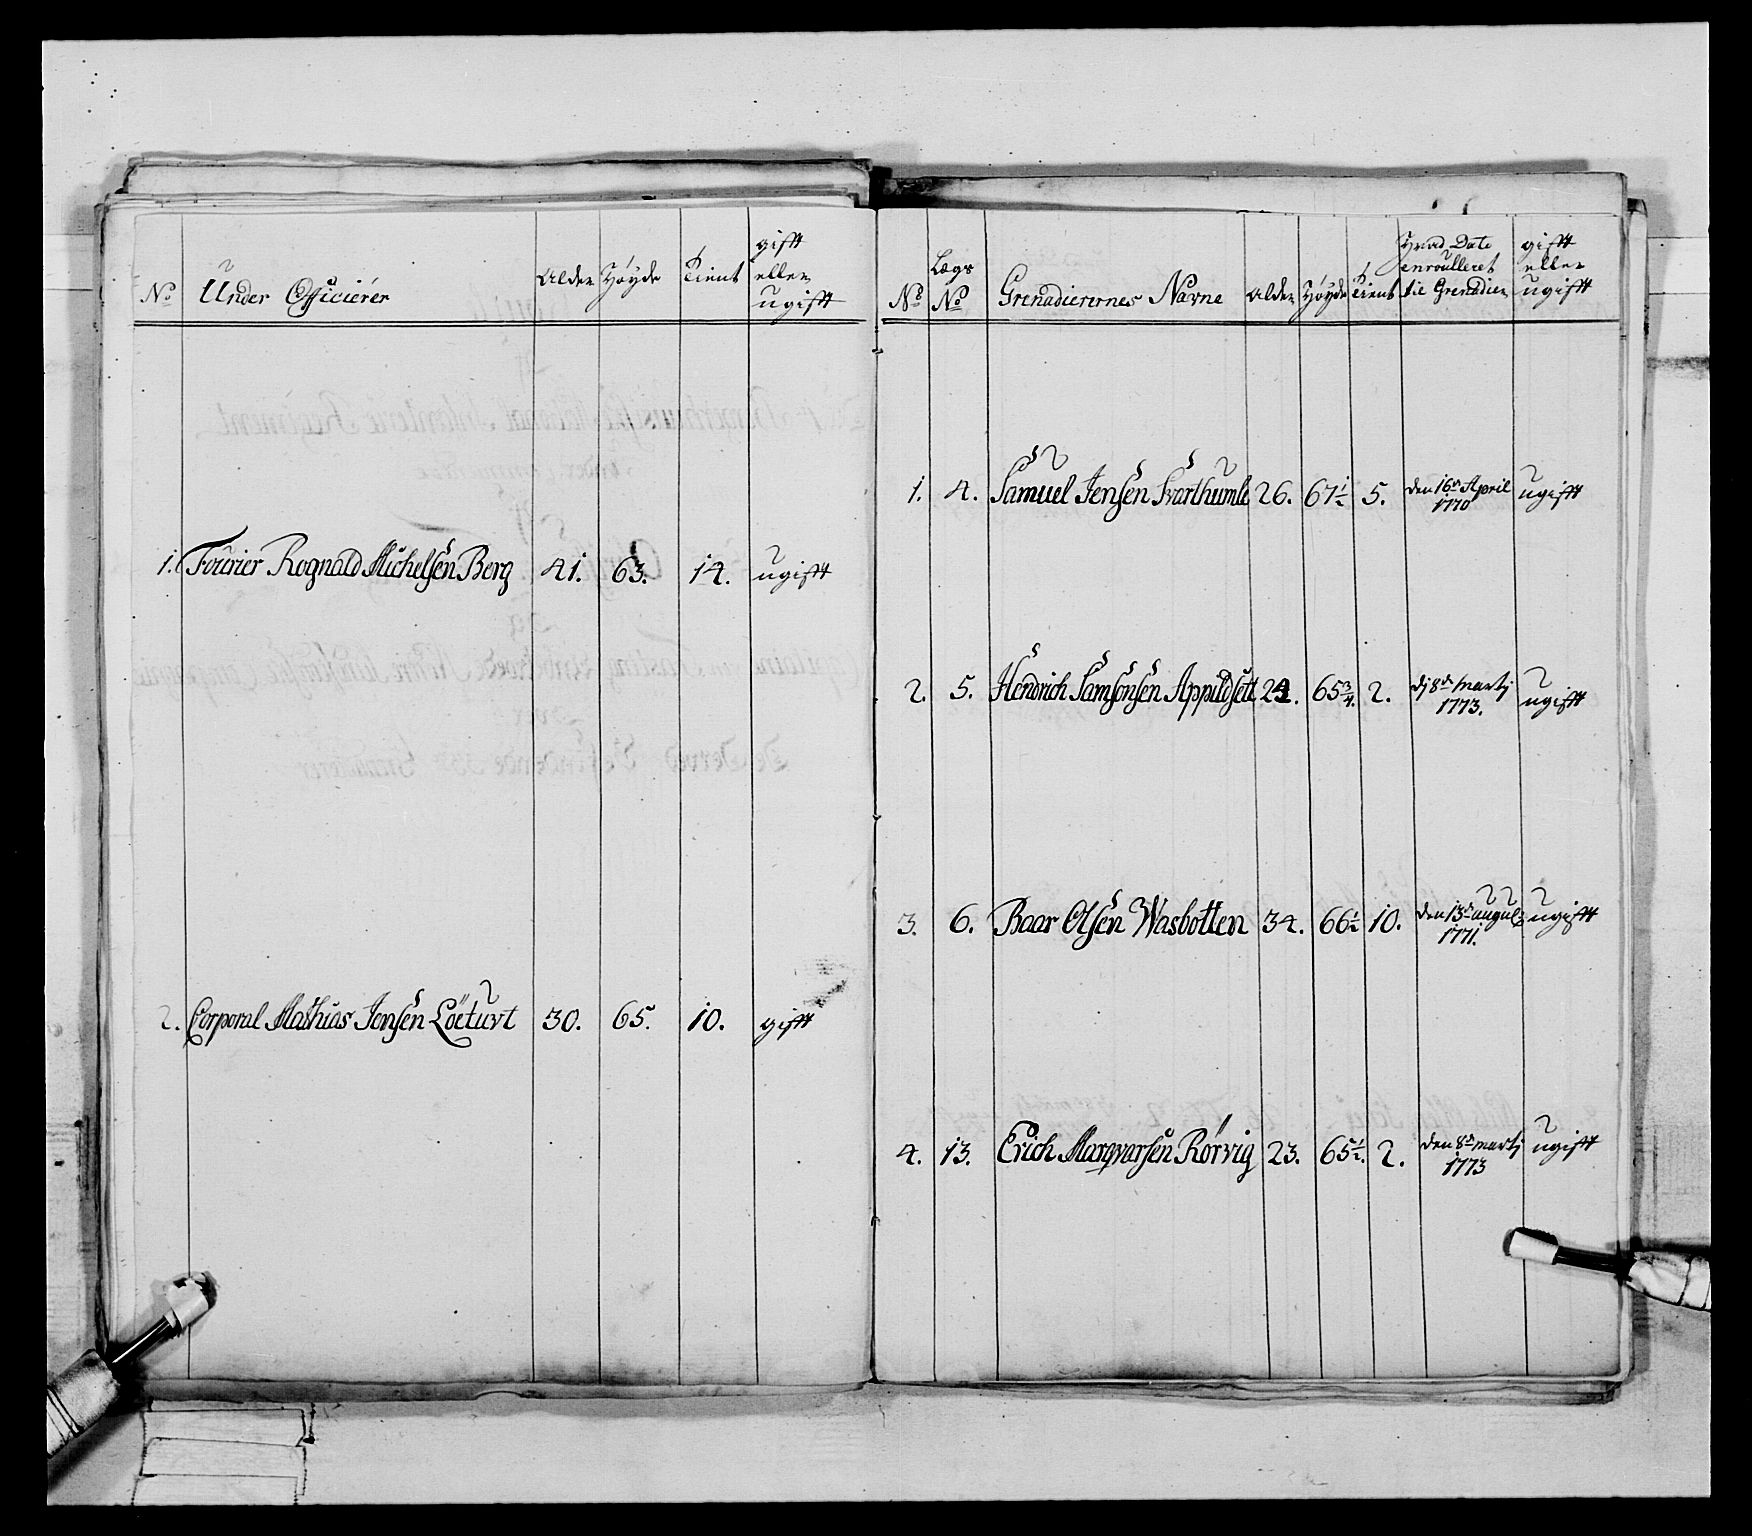 No Under Officierer Alder Høyde tient gift eller ugift
1. Fourier Rognald Michelsen Berg 41. 63. 14. ugift
2. Corporal Mathias Jensen Löeturt 30. 65. 10. gift
No Lægs No Grenadierernes Navne Alder Høyde tient Hvad Dato enroulleret til Grenadier gift eller ugift
1. 4. Samuel Jensen Svarthumle 26. 67½ 5. den 16de April 1770 ugift
2. 5. Hendrich Samsonsen Appildsett 24. 65¾. 2. dj 8de Martj 1773. ugift
3. 6. Baar Olsen Wasbotten 34. 66½ 10. den 13de august 1771. ugift
4. 13. Erich Marqvarsen Rørvig 23. 65½. 2. den 8de martj 1773 ugift